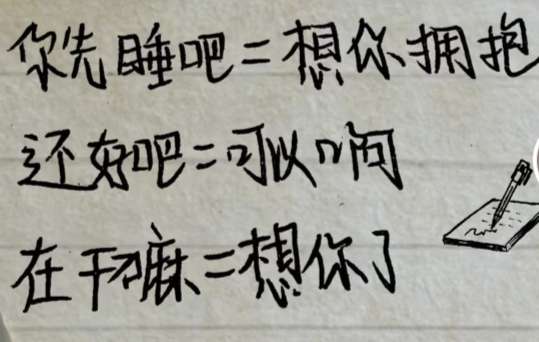 你先睡吧=想你拥抱
还好吧=可以啊
在干嘛=想你了